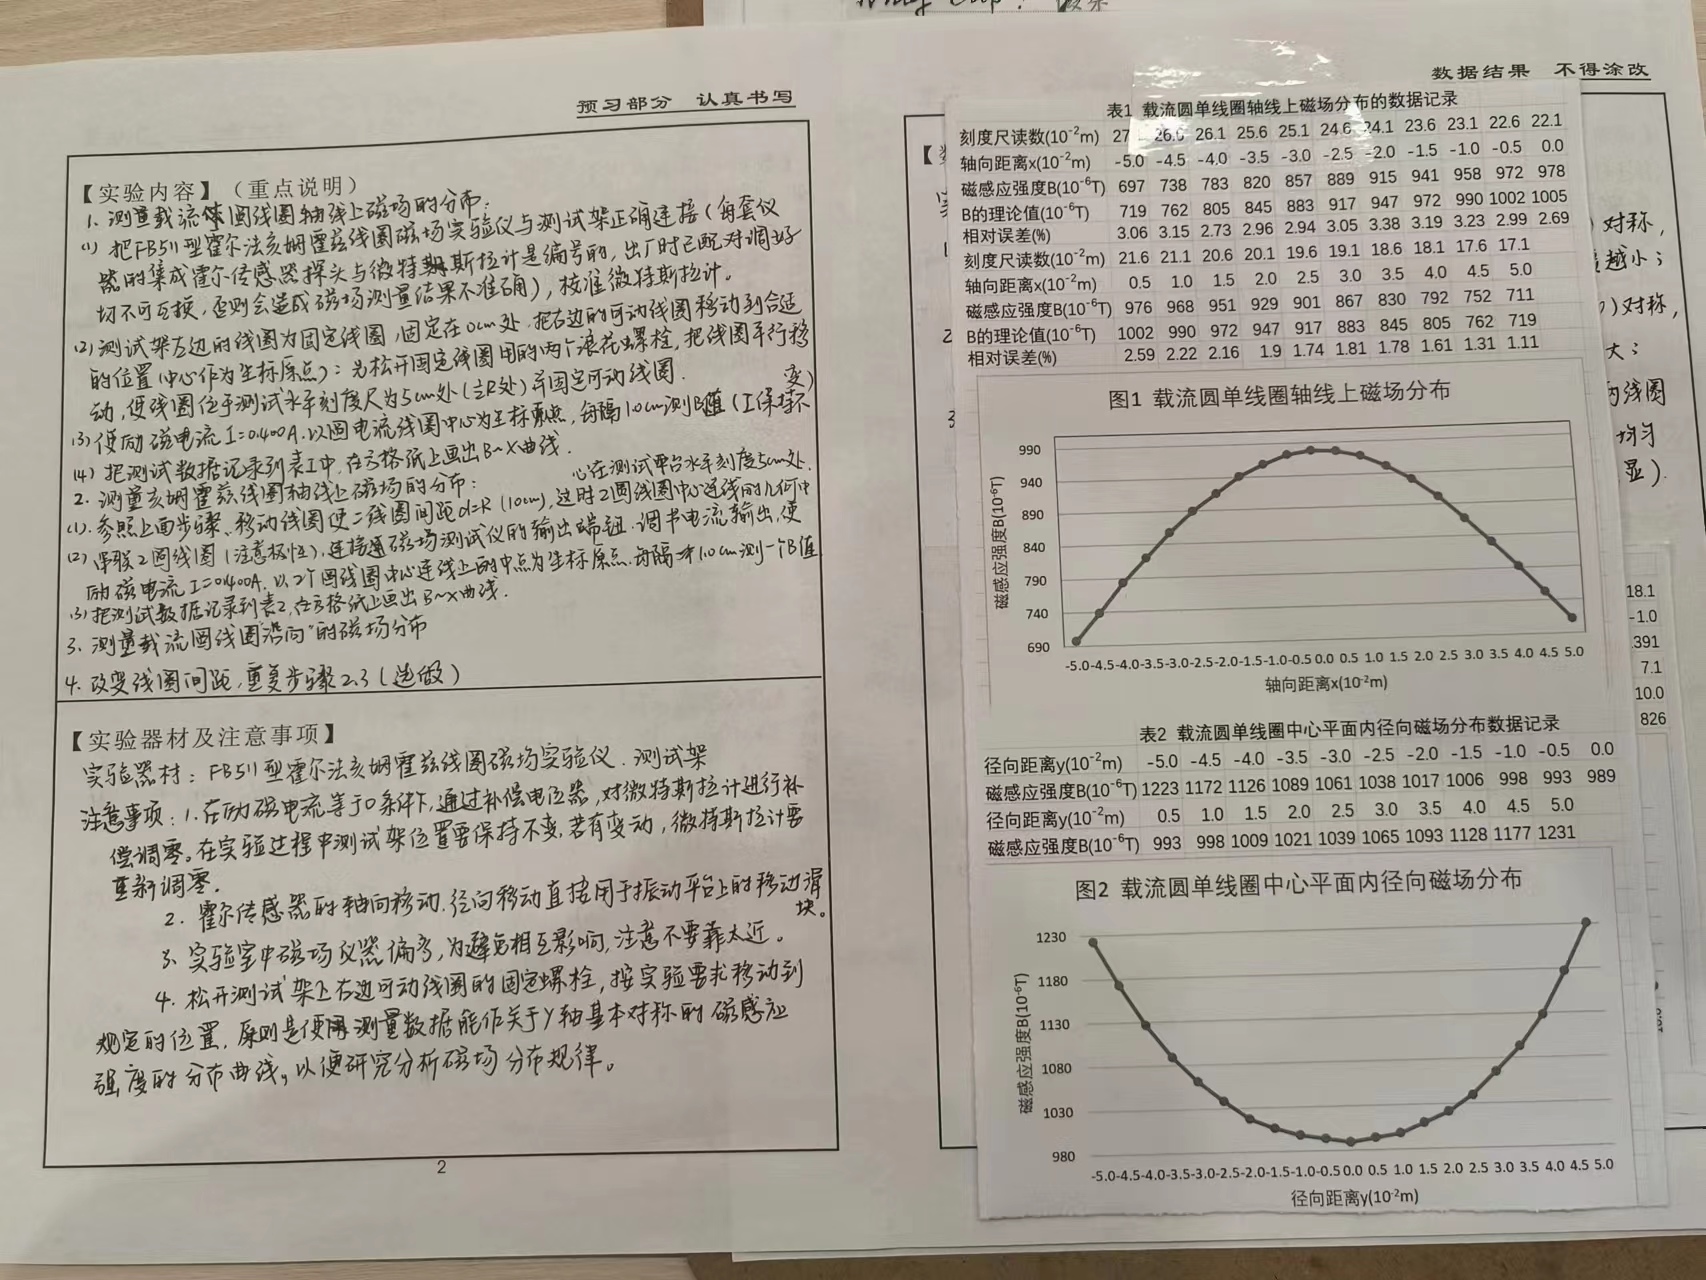 预习部分　认真书写
【实验内容】（重点说明）
1. 测量载流圆线圈轴线上磁场的分布.
(1) 把FB511型霍尔法亥姆霍兹线圈磁场实验仪与测试架正确连接（每套仪
器的集成霍尔传感器探头与微特斯拉计是编号的，出厂时已配对调好
切不可互换，否则会造成磁场测量结果不准确），校准微特斯拉计。
(2) 测试架左边的线圈为固定线圈，固定在0cm处，把右边的可动线圈移动到合适
的位置（中心作为坐标原点）：先松开固定线圈用的两个滚花螺栓，把线圈平行移
动，使线圈位于测试水平刻度尺为5cm处（½R处）并固定可动线圈.
(3) 使励磁电流I=0.400A.以圆电流线圈中心为坐标原点，每隔1.0cm测B值（I保持不
变）
(4) 把测试数据记录到表1中，在方格纸上画出B~X曲线.
2. 测量亥姆霍兹线圈轴线上磁场的分布：
心在测试平台水平刻度5cm处.
(1). 参照上面步骤、移动线圈使二线圈间距d=R（10cm），这时2圆线圈中心连线的几何中
(2) 串联2圆线圈（注意极性），连接磁场测试仪的输出端钮.调节电流输出，使
励磁电流I=0.400A.以2个圆线圈中心连线上的中点为坐标原点.每隔1.0cm测一个B值
(3) 把测试数据记录到表2，在方格纸上画出B~X曲线.
3. 测量载流圆线圈沿向的磁场分布
4. 改变线圈间距，重复步骤2.3（选做）
【实验器材及注意事项】
实验器材：FB511型霍尔法亥姆霍兹线圈磁场实验仪．测试架
注意事项：1. 在励磁电流等于0条件下，通过补偿电位器，对微特斯拉计进行补
偿调零。在实验过程中测试架位置要保持不变，若有变动，微特斯拉计要
重新调零.
2. 霍尔传感器的轴向移动.径向移动直接用于振动平台上的移动滑
块。
3. 实验室中磁场仪器偏多，为避免相互影响，注意不要靠太近。
4. 松开测试架上右边可动线圈的固定螺栓，按实验要求移动到
规定的位置，原则是使测量数据能作关于y轴基本对称的磁感应
强度的分布曲线，以便研究分析磁场分布规律。
2
数据结果　不得涂改
表1 载流圆单线圈轴线上磁场分布的数据记录
刻度尺读数(10⁻²m) 26.6 26.1 25.6 25.1 24.6 24.1 23.6 23.1 22.6 22.1
轴向距离x(10⁻²m) -5.0 -4.5 -4.0 -3.5 -3.0 -2.5 -2.0 -1.5 -1.0 -0.5 0.0
磁感应强度B(10⁻⁶T) 697 738 783 820 857 889 915 941 958 972 978
B的理论值(10⁻⁶T) 719 762 805 845 883 917 947 972 990 1002 1005
相对误差(%) 3.06 3.15 2.73 2.96 2.94 3.05 3.38 3.19 3.23 2.99 2.69
刻度尺读数(10⁻²m) 21.6 21.1 20.6 20.1 19.6 19.1 18.6 18.1 17.6 17.1
轴向距离x(10⁻²m) 0.5 1.0 1.5 2.0 2.5 3.0 3.5 4.0 4.5 5.0
磁感应强度B(10⁻⁶T) 976 968 951 929 901 867 830 792 752 711
B的理论值(10⁻⁶T) 1002 990 972 947 917 883 845 805 762 719
相对误差(%) 2.59 2.22 2.16 1.9 1.74 1.81 1.78 1.61 1.31 1.11
图1 载流圆单线圈轴线上磁场分布
磁感应强度B(10⁻⁶T)
990
940
890
840
790
740
690
-5.0 -4.5 -4.0 -3.5 -3.0 -2.5 -2.0 -1.5 -1.0 -0.5 0.0 0.5 1.0 1.5 2.0 2.5 3.0 3.5 4.0 4.5 5.0
轴向距离x(10⁻²m)
表2 载流圆单线圈中心平面内径向磁场分布数据记录
径向距离y(10⁻²m) -5.0 -4.5 -4.0 -3.5 -3.0 -2.5 -2.0 -1.5 -1.0 -0.5 0.0
磁感应强度B(10⁻⁶T) 1223 1172 1126 1089 1061 1038 1017 1006 998 993 989
径向距离y(10⁻²m) 0.5 1.0 1.5 2.0 2.5 3.0 3.5 4.0 4.5 5.0
磁感应强度B(10⁻⁶T) 993 998 1009 1021 1039 1065 1093 1128 1177 1231
图2 载流圆单线圈中心平面内径向磁场分布
磁感应强度B(10⁻⁶T)
1230
1180
1130
1080
1030
980
-5.0 -4.5 -4.0 -3.5 -3.0 -2.5 -2.0 -1.5 -1.0 -0.5 0.0 0.5 1.0 1.5 2.0 2.5 3.0 3.5 4.0 4.5 5.0
径向距离y(10⁻²m)
对称，
越小；
）对称，
大；
线圈
均匀
显）.
18.1
-1.0
391
7.1
10.0
826